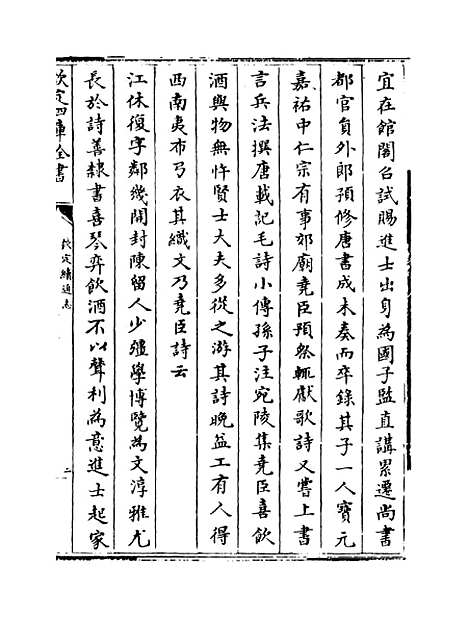 宜在館閣召試賜進士出身為國子監直講累遷尚書
都官員外郎預修唐書成未奏而卒錄其子一人寶元
嘉祐中仁宗有事郊廟堯臣預祭輒獻歌詩又嘗上書
言兵法撰唐載記毛詩小傳孫子注宛陵集堯臣喜飲
酒與物無忤賢士大夫多從之游其詩晚益工有人得
西南夷布弓衣其織文乃堯臣詩云
江休復字鄰幾開封陳留人少彊學博覽為文淳雅尤
長於詩善隸書喜琴弈飲酒不以聲利為意進士起家
欽定四庫全書
欽定續通志
二